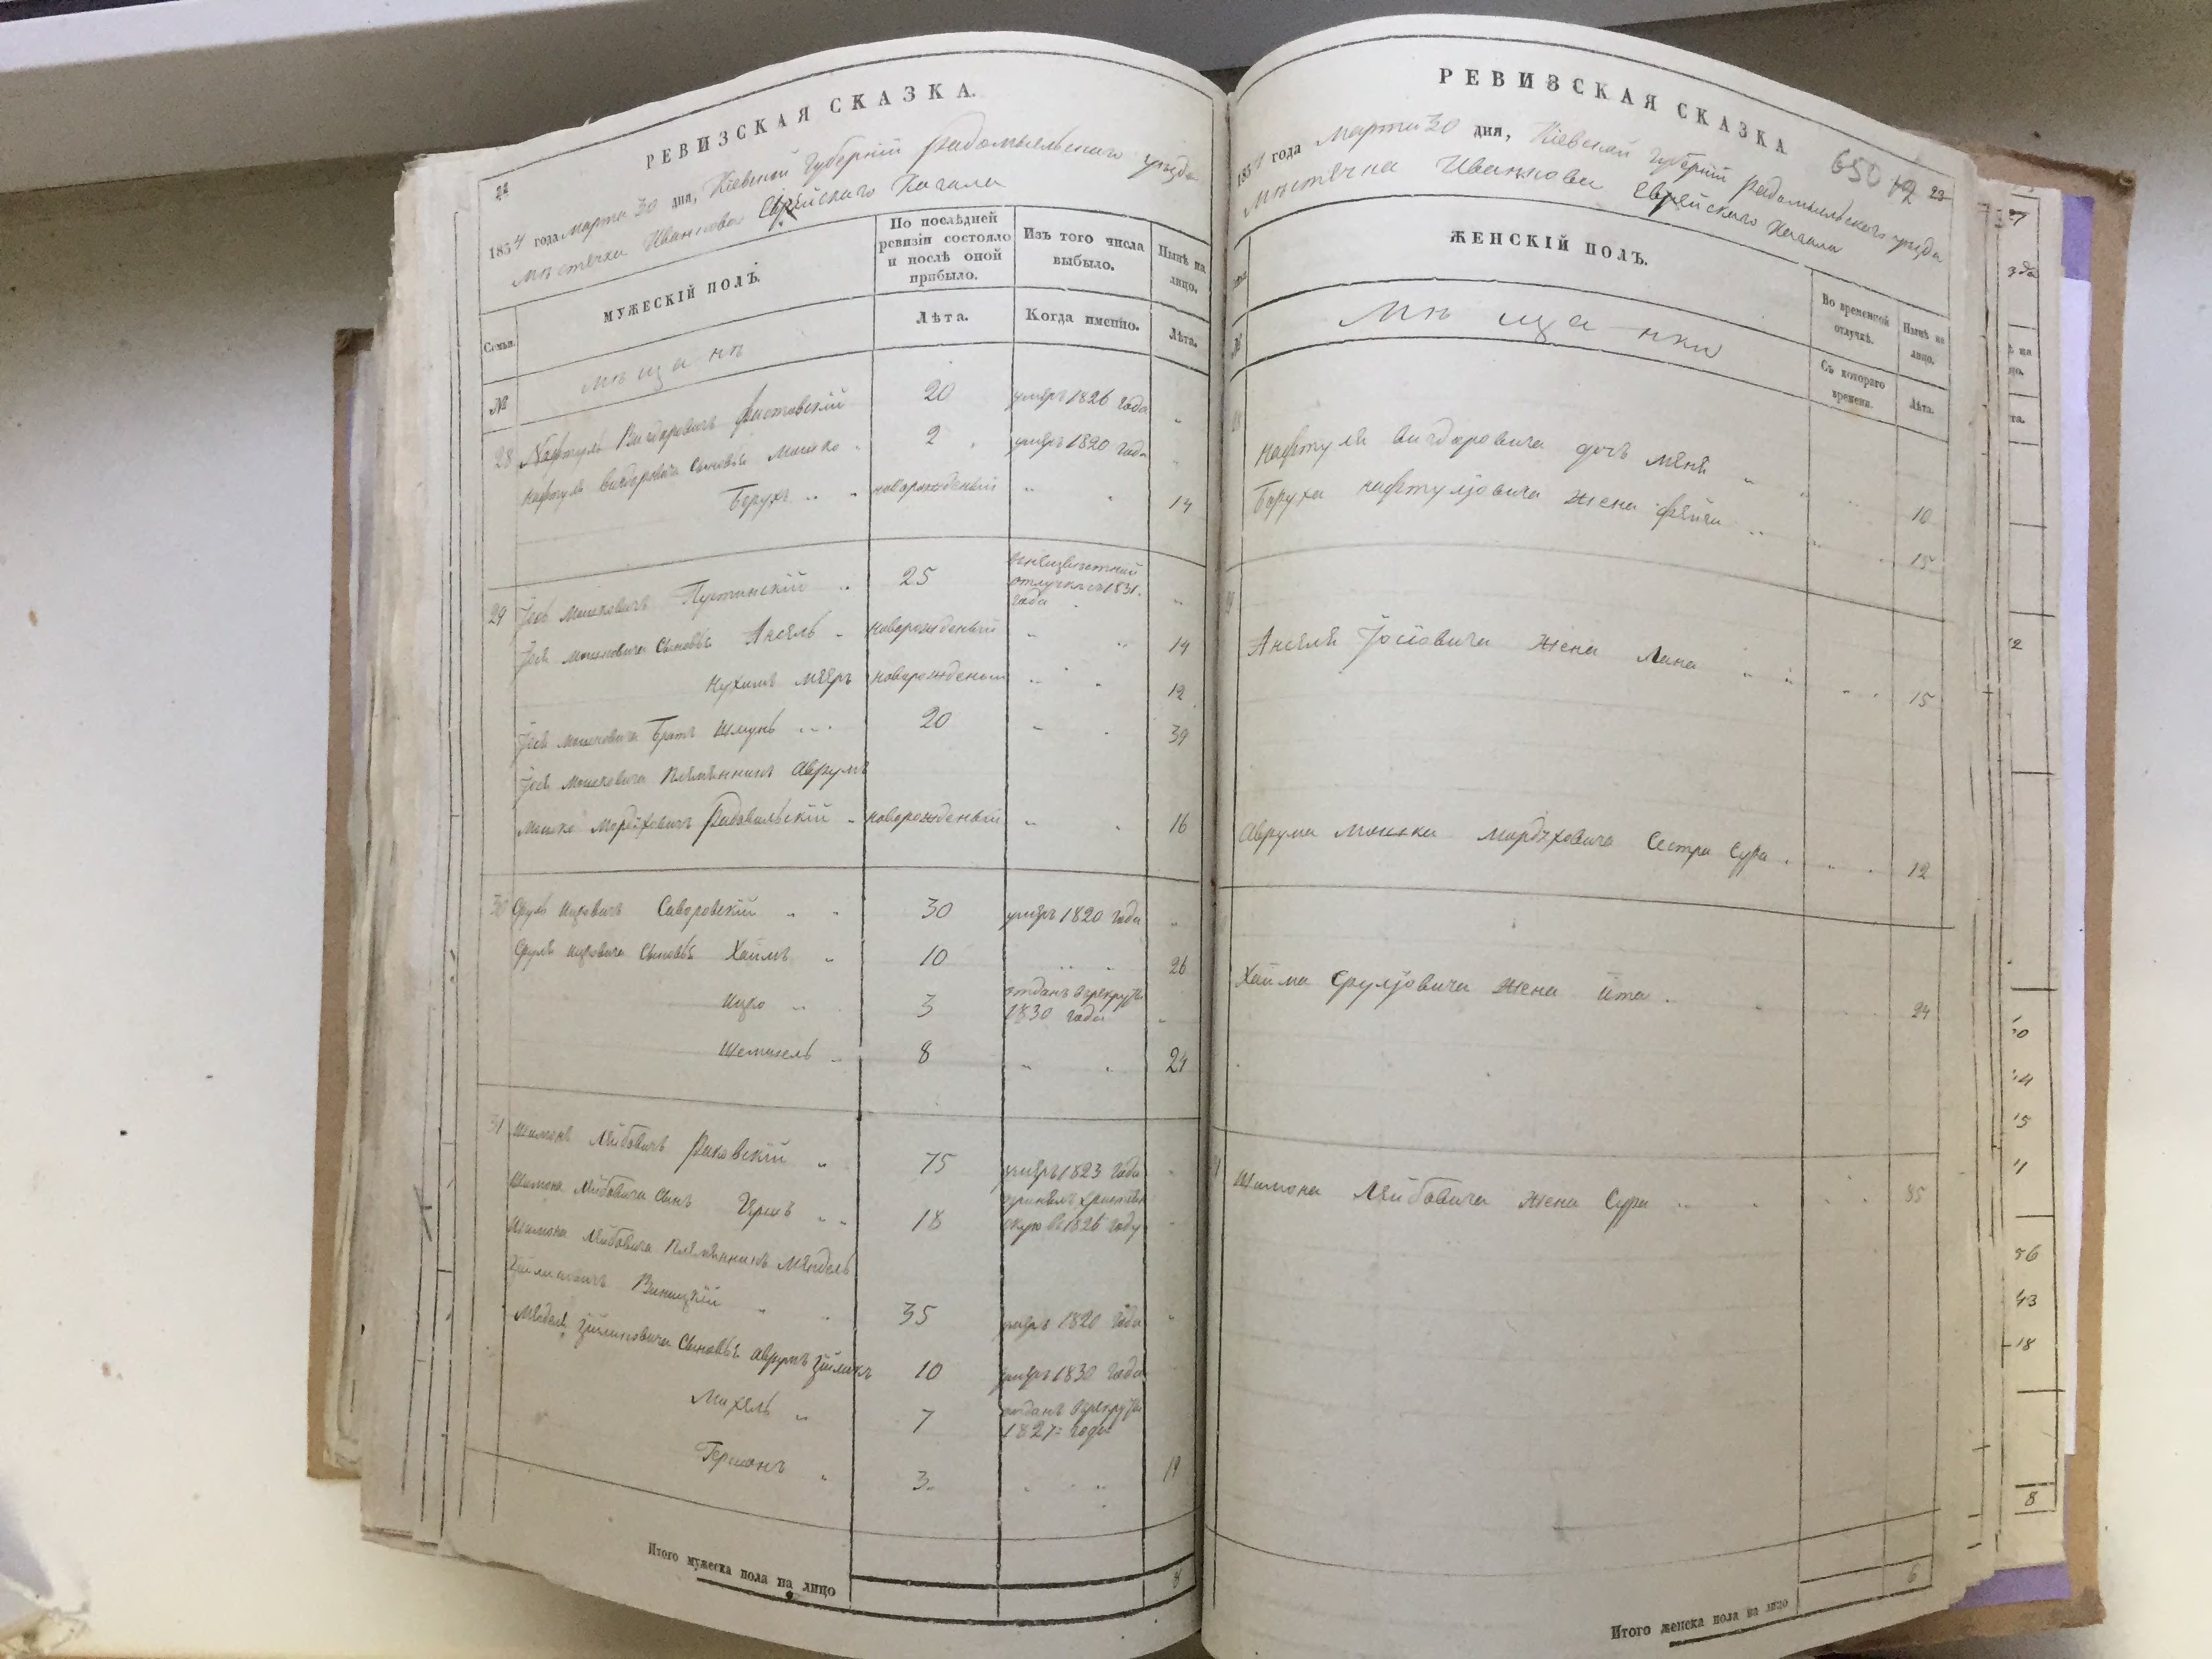 22
РЕВИЗСКАЯ СКАЗКА.
1834 года марта 30 дня, Кіевской Губерніи Радомыльскаго уѣзда
Мѣстечка Иванкова Еврейскаго Кагала
Семьи.
МУЖЕСКІЙ ПОЛЪ.
По послѣдней ревизіи состояло и послѣ оной прибыло.
Изъ того числа выбыло.
Нынѣ на лицо.
№
мѣщанѣ
Лѣта.
Когда именно.
Лѣта.
28 Нафтуль Вигдоровичъ Фастовскій 20 умеръ 1826 года
Нафтуля Вигдоровича Сыновья Мошко 2 умеръ 1820 года
Берухъ новорожденый 14
29 Іось Мошковичъ 25 отлучкѣ съ 1831. года
Іося Мошковича Сыновья Ансель новорожденый 14
Нухимъ Мееръ новорожденый 12
Іося Мошковича Братъ Шмунь 20 39
Іося Мошковича Племянникъ Аврумъ
Мошко Мордуховичъ Радовильскій новорожденый 16
30 Сруль Ицковичъ Сиворовскій 30 умеръ 1820 года
Сруля Ицковича Сыновья Хаимъ 10 26
Ицко 3 отданъ в рекруты 1830 года
Шемшель 8 24
31 Шимонъ Лейбовичъ Раковскій 75 умеръ 1823 года
Шимона Лейбовича Сынъ Гершъ 18 1826 году
Шимона Лейбовича Племянникъ Мендель
Виницкій 35 умеръ 1820 года
Менделя Зейликовича Сыновья Аврумъ Зейликъ 10 умеръ 1830 года
Михель 7 отданъ в рекруты 1827 года
Гершонъ 3 19
Итого мужеска пола на лицо 8
РЕВИЗСКАЯ СКАЗКА
650 23
1834 года марта 30 дня, Кіевской Губерніи Радомыльскаго уѣзда
Мѣстечка Иванкова Еврейскаго Кагала
ЖЕНСКІЙ ПОЛЪ.
Во временной отлучкѣ.
Нынѣ на лицо.
№
Мѣщанки
Съ котораго времени.
Лѣта.
Нафтуля Вигдоровича дочь Меня 10
Баруха Нафтулювича жена Фейга 15
Анселя Іосіовича жена Лана 15
Аврума Мошка Мордуховича Сестра Сура 12
Хаима Срулювича жена Ита 24
Шимона Лейбовича жена Сура 85
Итого женска пола на лицо 6